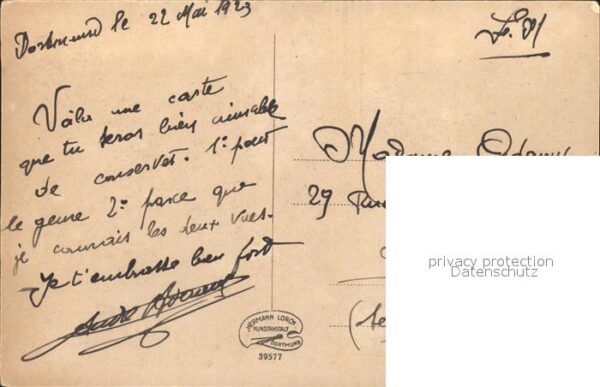 Dortmund le 22 Mai 1923
F. M
Voilà une carte
que tu seras bien aimable
de conserver. 1° pour
le genre 2° parce que
je connais les deux vues.
Je t'embrasse bien fort
Madame
29 Rue
privacy protection
Datenschutz
HERMANN LORCH
KUNSTANSTALT
DORTMUND
39577